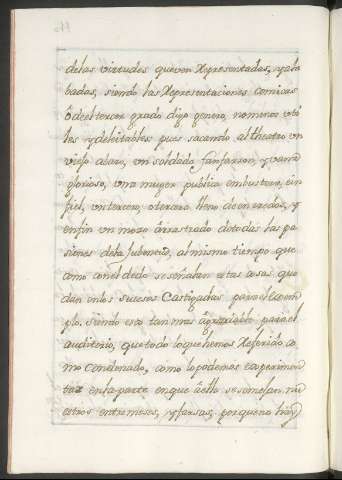 delas virtudes que ven Representadas, y ala
badas, siendo las Representaciones comicas
ô del tercer grado digo genero, no menos uti
les y deleitables pues sacando al theatro un
viejo abaro, un soldado fanfarron, y vana
glorioso, una muger publica embustera, è in
fiel, un tercero, o tercera lleno de enredos, y
enfin un mozo arrastrado de todas las pa
siones dela Jubentud, al mismo tiempo que
como con el dedo se señalan estas cosas que
dan en los sucesos Castigadas para el exem
plo, siendo esto tan mas agradable para el
auditorio, que todo lo que hemos Referido, co
mo condenado, como lo podemos experimen
tar en la parte en que à ello se semejan, nu
estros entremeses, y farsas, porque no hay